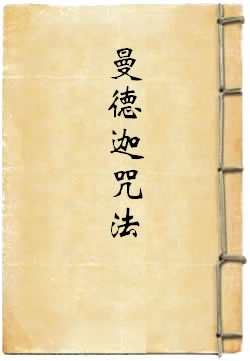 曼德迦咒法